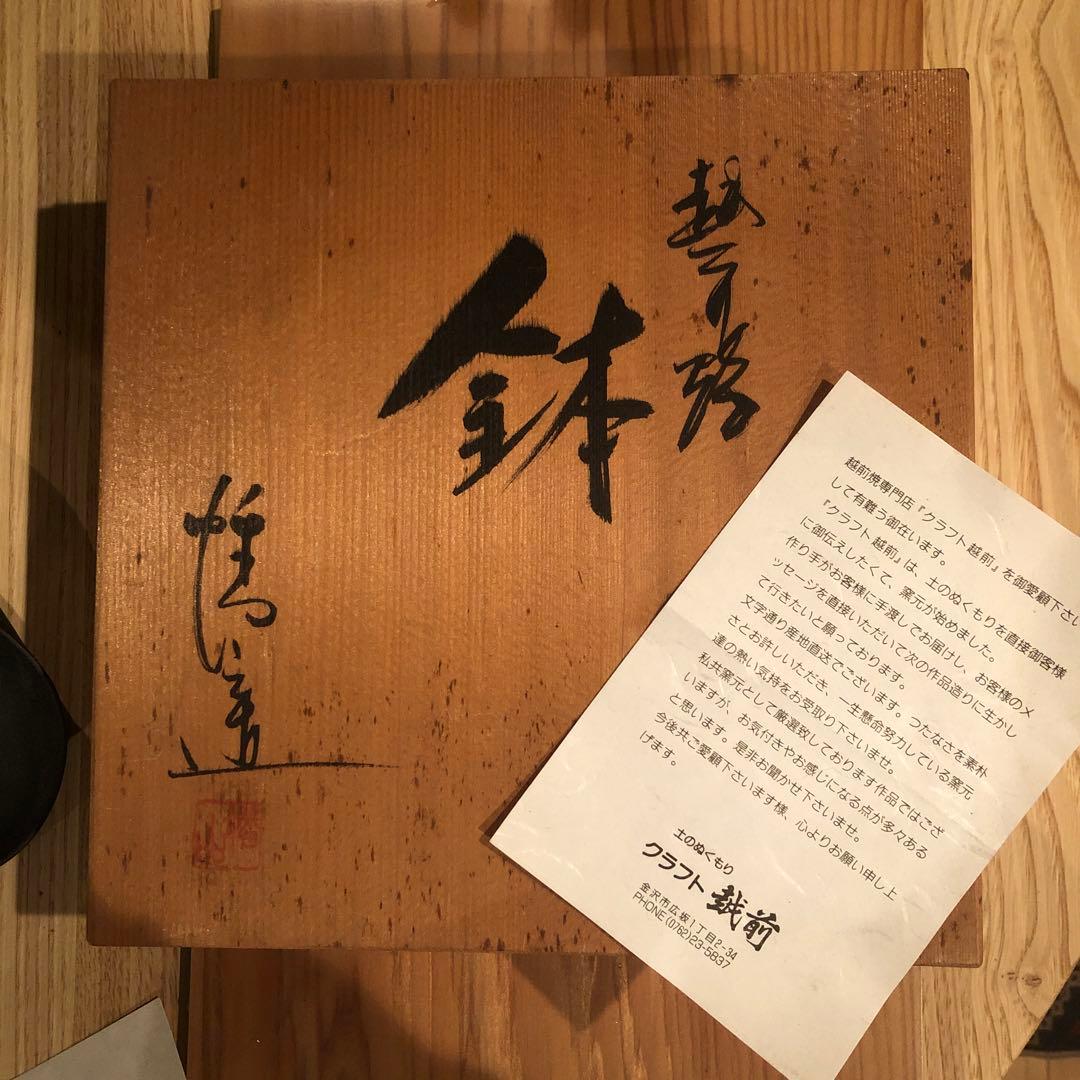 鉢
越前焼専門店『クラフト越前』を御愛顧下さい
して有難う御在います。
『クラフト越前』は、土のぬくもりを直接御客様
に御伝えしたくて、窯元が始めました。
作り手がお客様に手渡しでお届けし、お客様のメ
ッセージを直接いただいて次の作品造りに生かし
て行きたいと願っております。
文字通り産地直送でございます。つたなさを素朴
さとお許しいただき、一生懸命努力している窯元
達の熱い気持をお受取り下さいませ。
私共窯元として厳選致しております作品ではござ
いますが、お気付きやお感じになる点が多々ある
と思います。是非お聞かせ下さいませ。
今後共ご愛顧下さいます様、心よりお願い申し上
げます。
土のぬくもり
クラフト越前
金沢市広坂1丁目2-34
PHONE(0762)23-5837